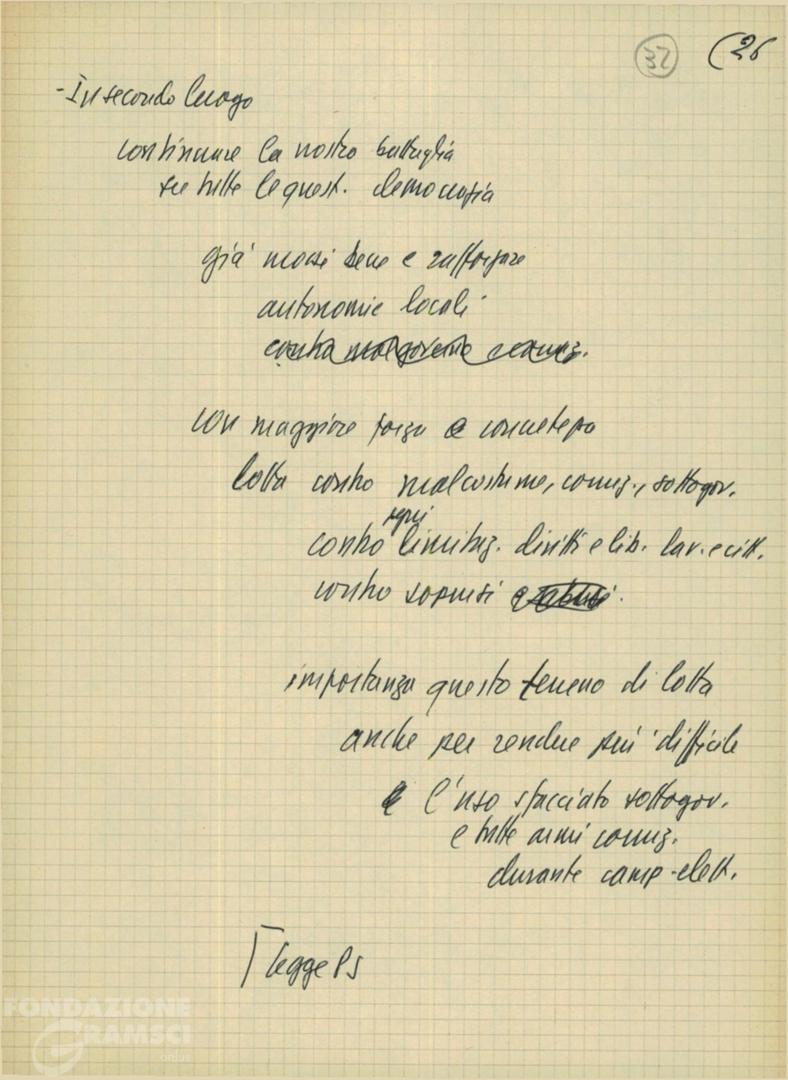 32 (26
- In secondo luogo
continuare la nostra battaglia
su tutte le quest. democrazia
già mossi bene e rafforzare
autonomie locali
contro malgoverno corruz.
con maggiore forza e concretezza
lotta contro malcostume, corruz., sottogov.
ogni
contro limitaz. diritti e lib. lav. e citt.
contro soprusi e abusi.
importanza questo terreno di lotta
anche per rendere più difficile
l'uso sfacciato sottogov.
e tutte armi corruz.
durante camp. elett.
legge PS
FONDAZIONE
GRAMSCI
onlus